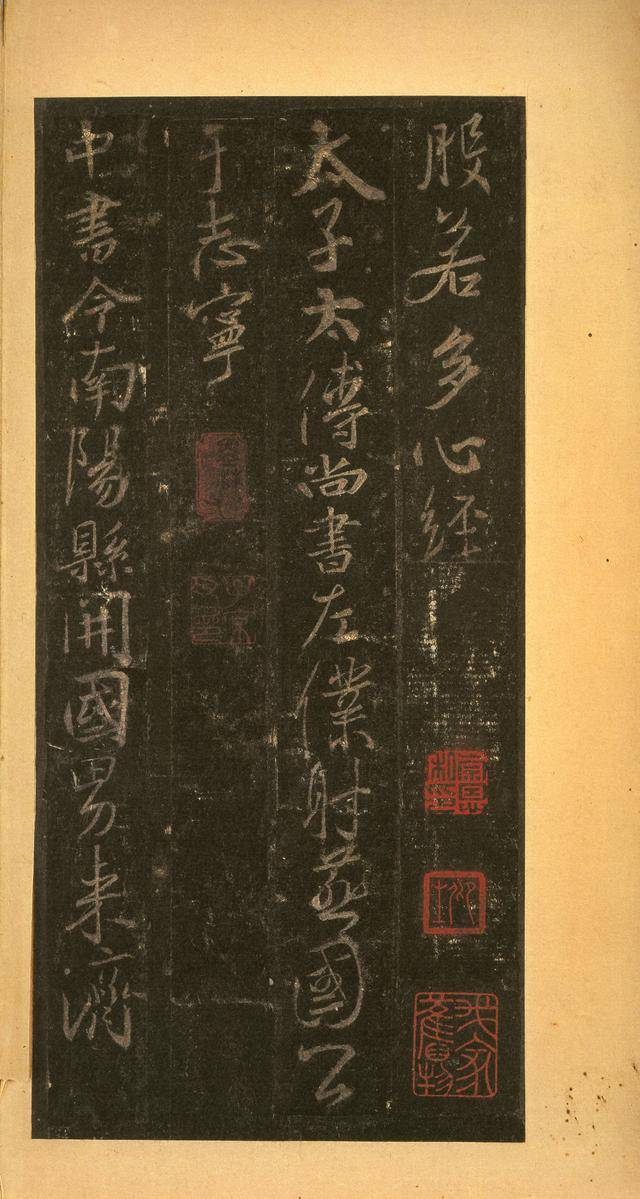 般若多心經
太子太傅尚書左僕射燕國公
于志寧
中書令南陽縣開國男來濟